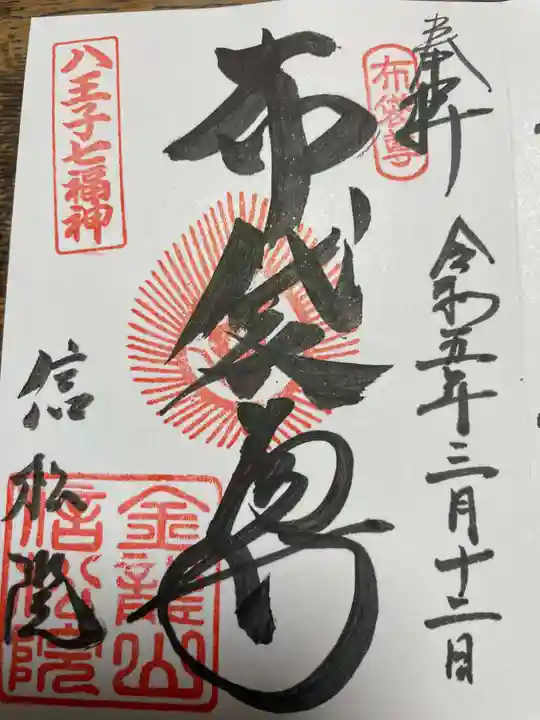 奉拝
布袋尊
令和五年三月十二日
布袋尊
八王子七福神
信松院
金龍山
信松院